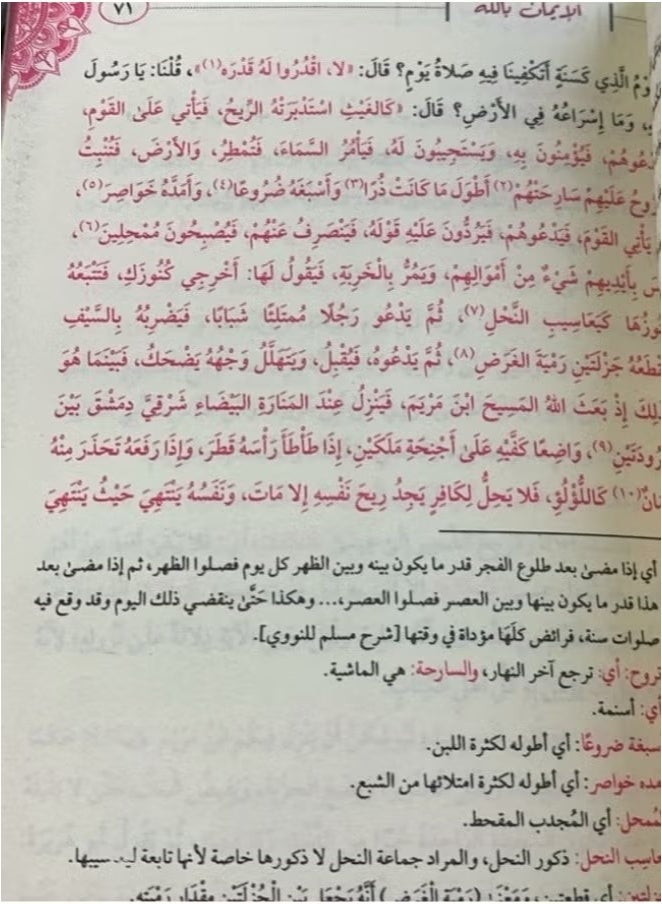 ٧١
الإيمان بالله
الَّذِي كَسَنَةٍ أَتَكْفِينَا فِيهِ صَلَاةُ يَوْمٍ؟ قَالَ: «لا، اقْدُرُوا لَهُ قَدْرَه(١)»، قُلْنَا: يَا رَسُولَ
وَمَا إِسْرَاعُهُ فِي الأَرْضِ؟ قَالَ: «كَالغَيْثِ اسْتَدْبَرَتْهُ الرِّيحُ، فَيَأْتِي عَلَى القَوْمِ،
فَيُؤْمِنُونَ بِهِ، وَيَسْتَجِيبُونَ لَهُ، فَيَأْمُرُ السَّمَاءَ، فَتُمْطِرُ، وَالأَرْضَ، فَتُنْبِتُ
عَلَيْهِمْ سَارِحَتُهُمْ(٢) أَطْوَلَ مَا كَانَتْ ذُرًا(٣) وَأَسْبَغَهُ ضُرُوعًا(٤)، وَأَمَدَّهُ خَوَاصِرَ(٥)،
يَأْتِي القَوْمَ، فَيَدْعُوهُمْ، فَيَرُدُّونَ عَلَيْهِ قَوْلَهُ، فَيَنْصَرِفُ عَنْهُمْ، فَيُصْبِحُونَ مُمْحِلِينَ(٦)،
بِأَيْدِيهِمْ شَيْءٌ مِنْ أَمْوَالِهِمْ، وَيَمُرُّ بِالْخَرِبَةِ، فَيَقُولُ لَهَا: أَخْرِجِي كُنُوزَكِ، فَتَتْبَعُهُ
كَيَعَاسِيبِ النَّحْلِ(٧)، ثُمَّ يَدْعُو رَجُلًا مُمتَلِئًا شَبَابًا، فَيَضْرِبُهُ بِالسَّيْفِ
جَزْلَتَيْنِ رَمْيَةَ الغَرَضِ(٨)، ثُمَّ يَدْعُوهُ، فَيُقْبِلُ، وَيَتَهَلَّلُ وَجْهُهُ يَضْحَكُ، فَبَيْنَمَا هُوَ
إِذْ بَعَثَ اللهُ المَسِيحَ ابْنَ مَرْيَمَ، فَيَنْزِلُ عِنْدَ المَنَارَةِ البَيْضَاءِ شَرْقِيَّ دِمَشْقَ بَيْنَ
(٩)، وَاضِعًا كَفَّيْهِ عَلَى أَجْنِحَةِ مَلَكَيْنِ، إِذَا طَأْطَأَ رَأْسَهُ قَطَرَ، وَإِذَا رَفَعَهُ تَحَدَّرَ مِنْهُ
(١٠) كَاللُّؤْلُؤِ، فَلا يَحِلُّ لِكَافِرٍ يَجِدُ رِيحَ نَفْسِهِ إِلا مَاتَ، وَنَفَسُهُ يَنْتَهِي حَيْثُ يَنْتَهِي
أي إذا مضى بعد طلوع الفجر قدر ما يكون بينه وبين الظهر كل يوم فصلوا الظهر، ثم إذا مضى بعد
هذا قدر ما يكون بينها وبين العصر فصلوا العصر،... وهكذا حَتَّى ينقضي ذلك اليوم وقد وقع فيه
صلوات سنة، فرائض كلها مؤداة في وقتها [شرح مسلم للنووي].
تروح: أي: ترجع آخر النهار، والسارحة: هي الماشية.
أي: أسنمة.
ضروعًا: أي أطوله لكثرة اللبن.
خواصر: أي أطوله لكثرة امتلائها من الشبع.
أي المُجدب المقحط.
النحل: ذكور النحل، والمراد جماعة النحل لا ذكورها خاصة لأنها تابعة ليعسيبها.
أي قطعتين، وَمَعْنَى (رَمْيَة الْغَرَض) أَنَّهُ يَجْعَل بَيْن الْجُزْلَتَيْنِ مِقْدَار رَمْيَته.